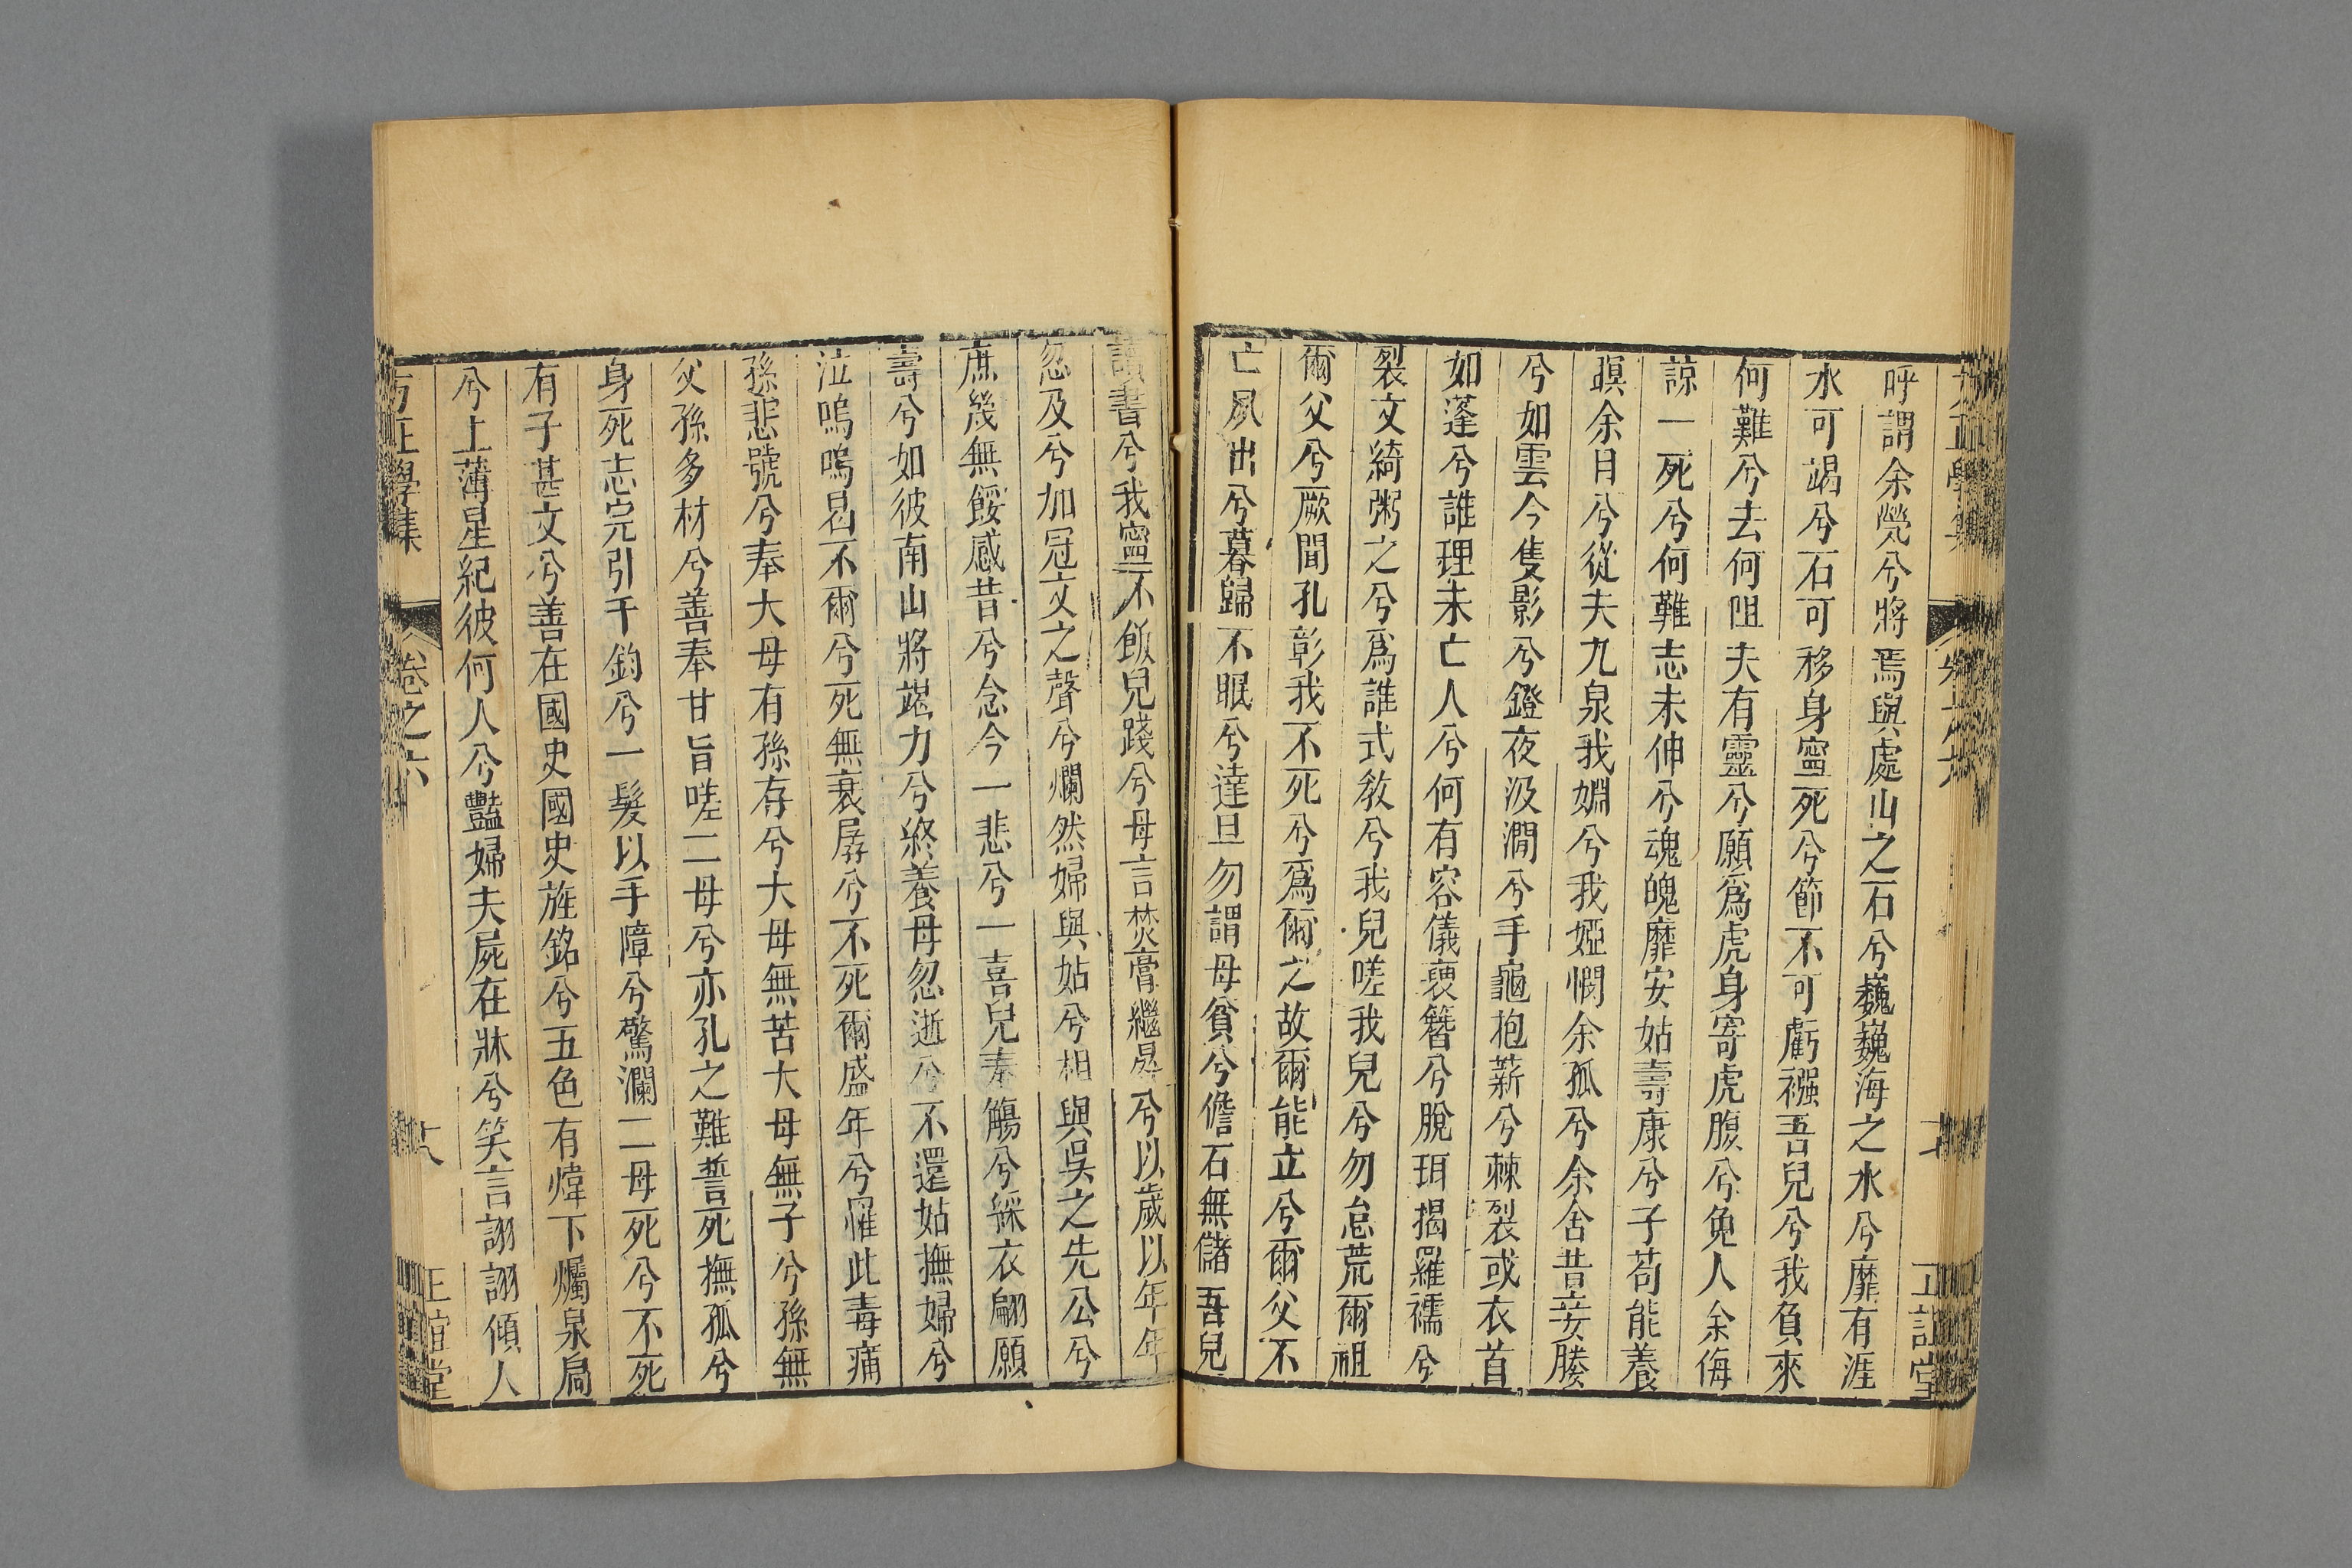 方正學集
卷之六
正誼堂
呼謂余煢兮將焉與處山之石兮巍巍海之水兮靡有涯
水可竭兮石可移身寧死兮節不可虧襁吾兒兮我負來
何難兮去何阻夫有靈兮願爲虎身寄虎腹兮免人余侮
諒一死兮何難志未伸兮魂魄靡安姑壽康兮子苟能養
瞑余目兮從夫九泉我婣兮我婭憫余孤兮余舍昔妾媵
兮如雲今隻影兮鐙夜汲澗兮手龜抱薪兮棘裂或衣首
如蓬兮誰理未亡人兮何有容儀褻簪兮脫珥揭羅襦兮
裂文綺粥之兮爲誰式敎兮我兒嗟我兒兮勿怠荒爾祖
爾父兮厥聞孔彰我不死兮爲爾之故爾能立兮爾父不
亡夙出兮暮歸不眠兮達旦勿謂母貧兮儋石無儲吾兒
讀書兮我寧不飯兒踐兮母言焚膏繼晷兮以歲以年年
忽及兮加冠文之聲兮爛然婦與姑兮相與吳之先公兮
庶幾無餒感昔兮念今一悲兮一喜兒奉觴兮綵衣翩願
壽兮如彼南山將竭力兮終養母忽逝兮不還姑撫婦兮
泣嗚嗚曷不爾兮死無衰孱兮不死爾盛年兮罹此毒痛
孫悲號兮奉大母有孫存兮大母無苦大母無子兮孫無
父孫多材兮善奉甘旨嗟二母兮亦孔之難誓死撫孤兮
身死志完引千鈞兮一髮以手障兮驚瀾二母死兮不死
有子甚文兮善在國史國史旌銘兮五色有煒下燭泉扃
兮上薄星紀彼何人兮豔婦夫屍在牀兮笑言詡詡傾人
方正學集
卷之六
十八
正誼堂